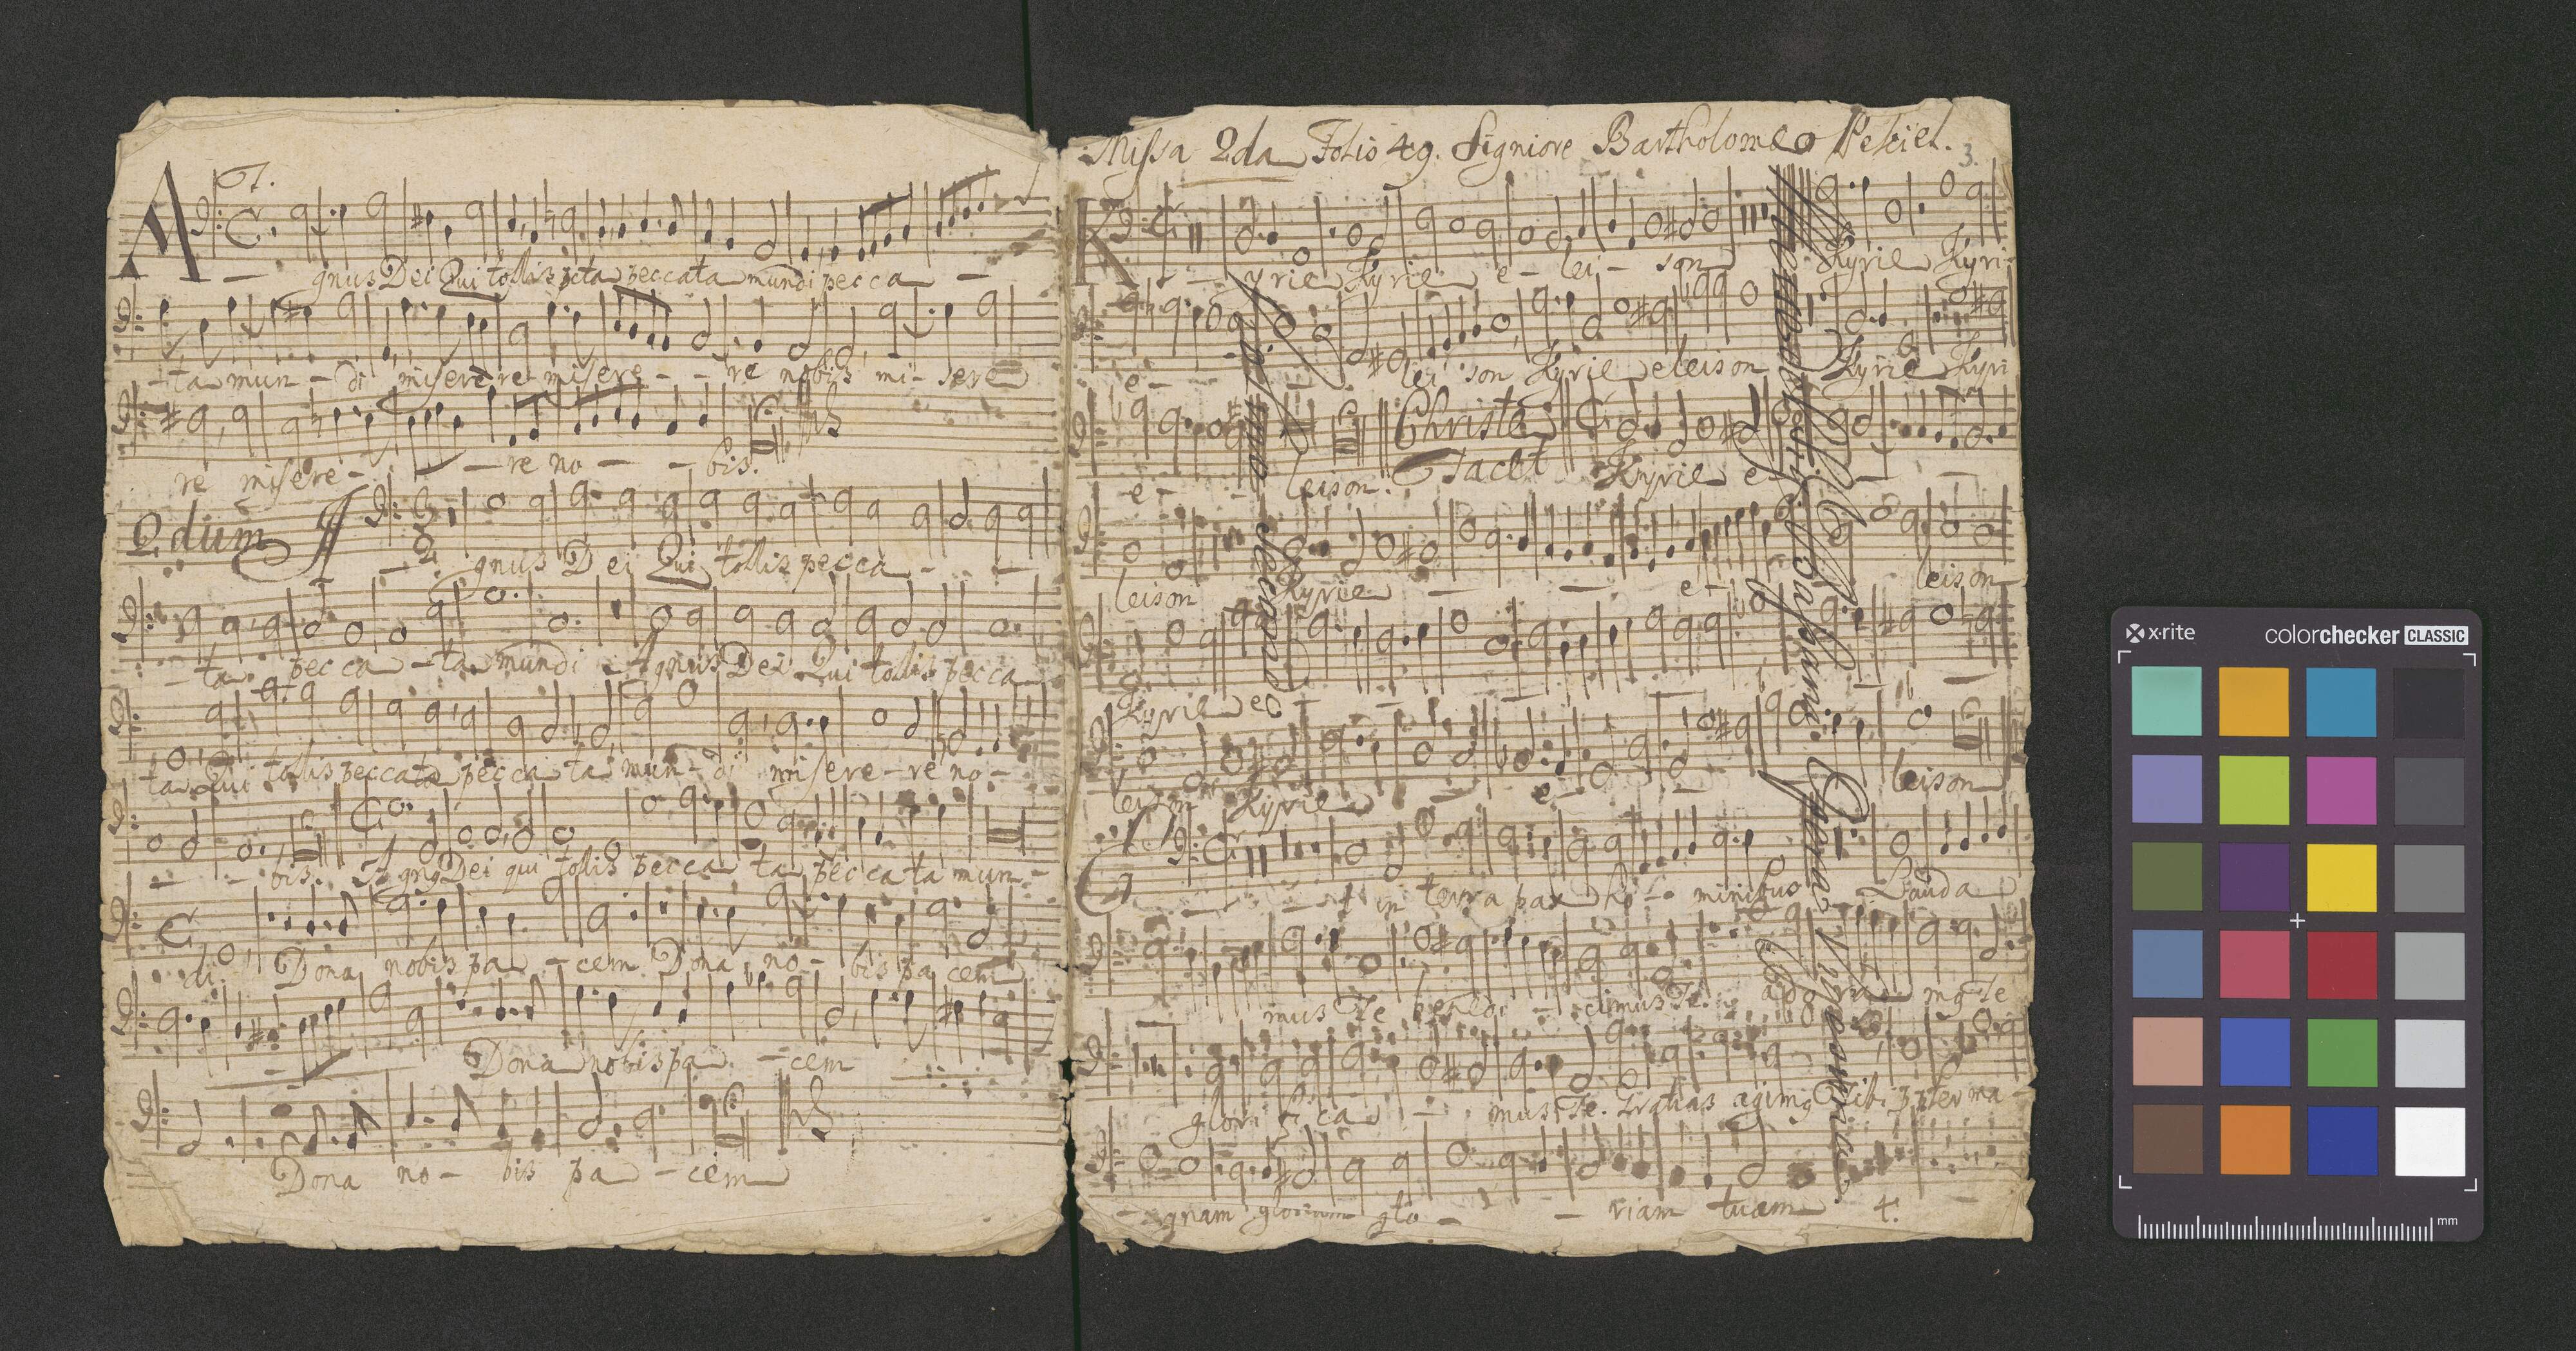 A gnus Dei Qui tollis pcta peccata mundi pecca
ta mun - di miserere misere - - re nobis mi - sere
re misere - - re no - - bis.
2dum A gnus Dei Qui tollis pecca - -
- ta pecca - ta mundi Agnus Dei Qui tollis pecca
ta Qui tollis peccata pecca ta mun - di misere - re no -
- - bis. Agng Dei qui tollis pecca ta pecca ta mun -
di. Dona nobis pa - cem Dona no - bis pa cem
Dona nobis pa - cem
Dona no - bis pa - cem
Missa 2da Folio 49. Signiore Bartholomeo Pekiel.
3.
K - - yrie Kyrie e - lei - son Kyrie Kyri
e - lei son Kyrie eleison Kyrie Kyri
e - leison. Christe Tacet Kyrie e -
leison Kyrie - - e - leison
Kyrie e - - -
leison Kyrie - e - - leison
Et in terra pax ho - minibus Lauda
mus Te benedi - cimus Te. ado ra mg Te
glori fi ca - mus Te. Gratias agimg Tibi ma -
gnam gloriam glo - - riam tuam 4.